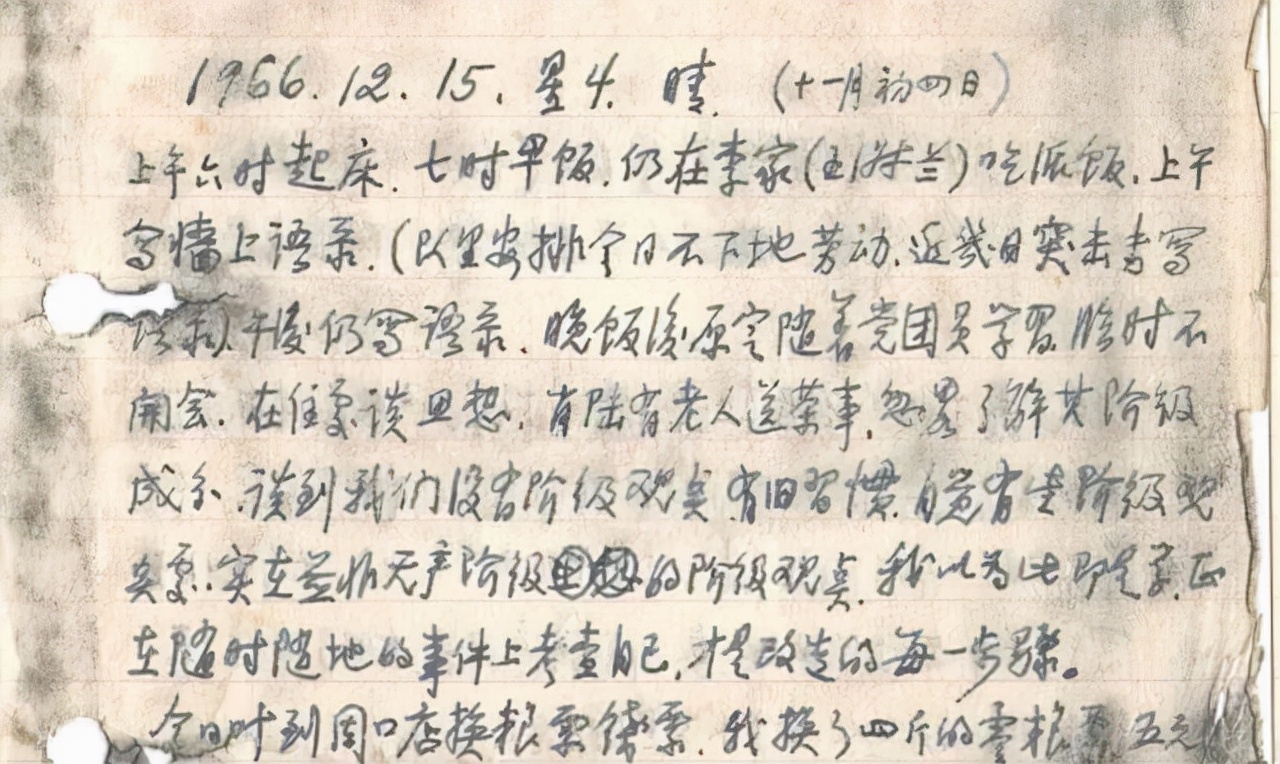 1966.12.15. 星4. 晴. (十一月初四日)
上午六时起床. 七时早饭. 仍在李家(王淑兰)吃派饭. 上午
写墙上语录. (队里安排今日不下地劳动. 近几日突击专写
语录) 午後仍写语录. 晚饭後原定随着党团员学习 临时不
开会. 在住处谈思想. 有陆有老人送菜事. 忽略了解其阶级
成分. 谈到我们没有阶级观点. 有旧习惯. 自觉有些阶级观
点处. 实在并非无产阶级的阶级观点. 我以为此即是学. 正
在随时随地的事件上考查自己. 才是改造的每一步骤。
今日时到周口店换粮票 我换了四斤的零粮票. 五元